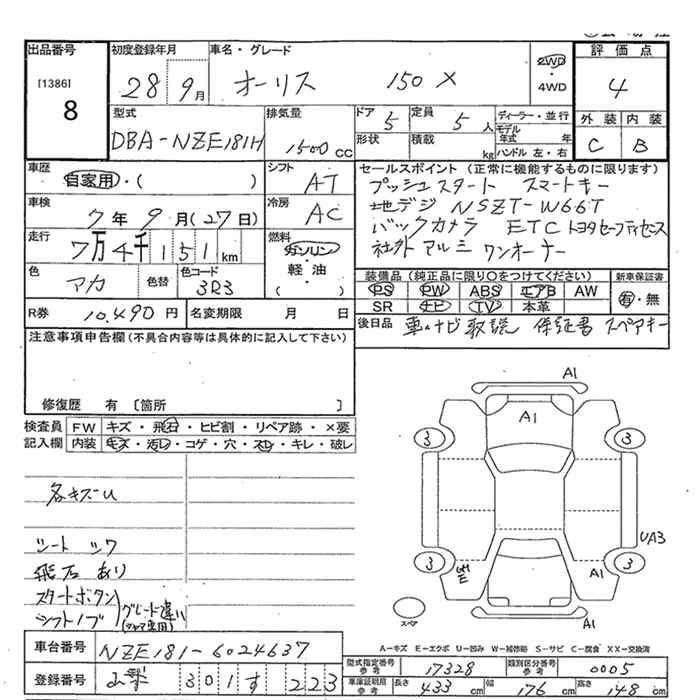 出品番号
[1386]
8
初度登録年月
28 9月
車名・グレード
オーリス 150X
2WD
・
4WD
評価点
4
外装 内装
C B
型式
DBA-NZE181H
排気量
1500 CC
ドア 5
定員 5 人
形状
積載 kg
ディーラー・並行
モデル年式 年
ハンドル 左・右
車歴
自家用・( )
シフト
AT
車検
7年9月(27日)
冷房
AC
走行
7万4千151km
燃料
ガソリン
・
軽・油
( )
色
アカ
色替
色コード
3R3
R券 10.490円
名変期限 月 日
セールスポイント (正常に機能するものに限ります)
プッシュスタート スマートキー
地デジ NSZT-W66T
バックカメラ ETC トヨタセーフティセンス
社外アルミ ワンオーナー
装備品(純正品に限り○をつけてください)
新車保証書
PS PW ABS エアB AW
SR ナビ TV 本革
有・無
後日品 車、ナビ取説 保証書 スペアキー
注意事項申告欄(不具合内容等は具体的に記入して下さい)
修復歴 有 〔箇所 〕
検査員記入欄
FW キズ・飛石・ヒビ割・リペア跡・×要
内装 キズ・汚レ・コゲ・穴・スレ・キレ・破レ
各キズU
シート シワ
飛石 あり
スタートボタン
シフトノブ
グレード違い
A1
A1
3
3
3
3
UA3
A1
A1
スペア
A-キズ E-エクボ U-凹み W-補修跡 S-サビ C-腐食 XX-交換済
車台番号 NZE181-6024637
登録番号 山梨 301 す 223
型式指定番号 参考 17328
類別区分番号 参考 0005
車庫証明用 参考 長さ 433 cm 幅 176 cm 高さ 148 cm